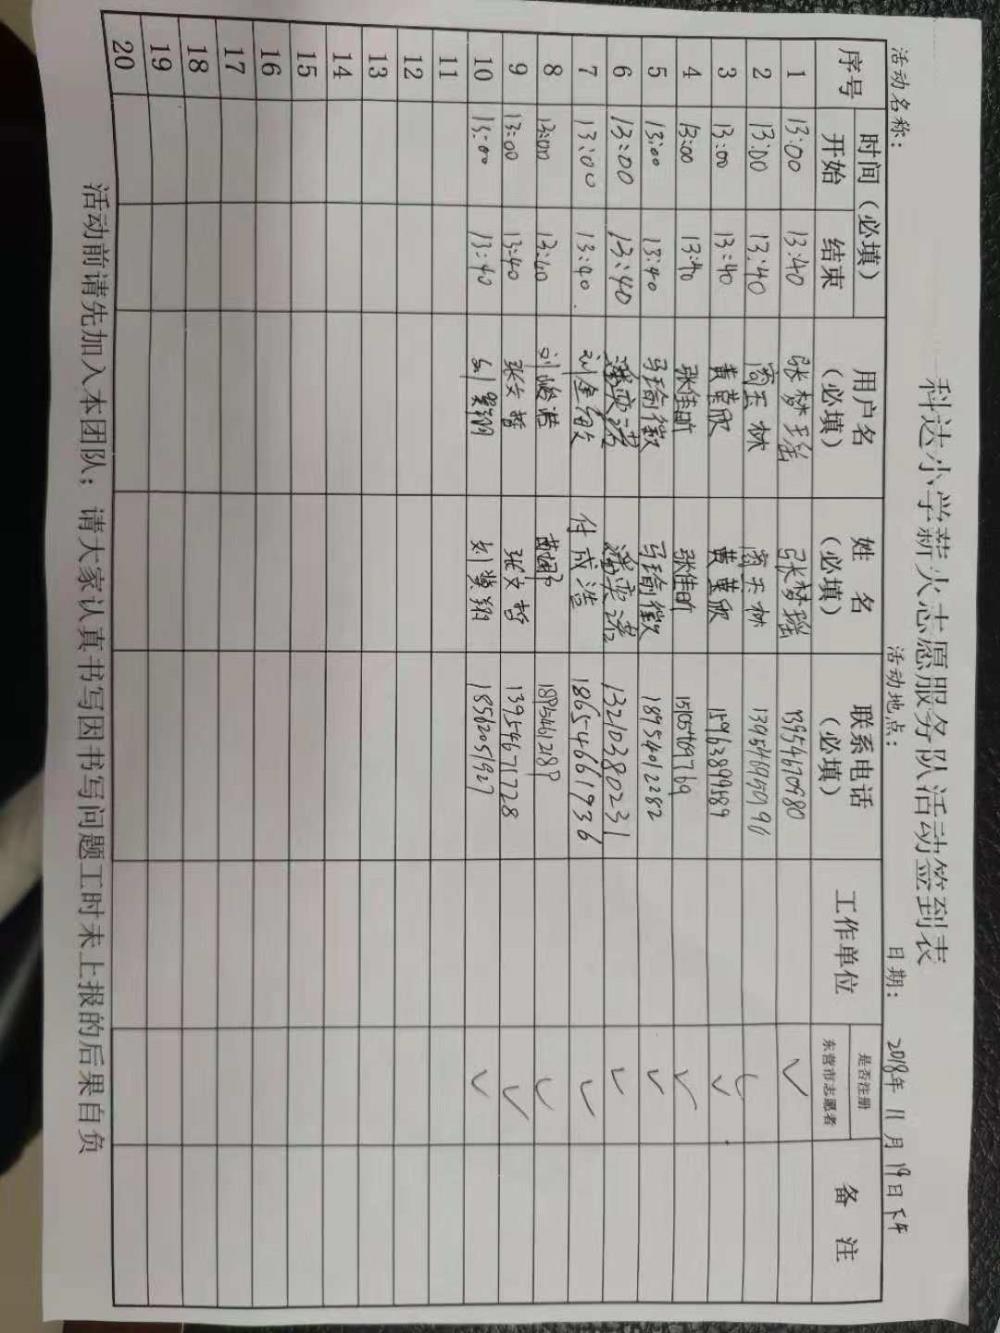 科达小学薪火志愿服务队活动签到表
活动名称： 活动地点： 日期： 2018年 11 月 19 日下午
序号 时间（必填） 用户名（必填） 姓 名（必填） 联系电话（必填） 工作单位 是否注册东营市志愿者 备 注
开始 结束
1 13:00 13:40 张梦瑶 张梦瑶 13954670980 ✓
2 13:00 13:40 ✓
3 13:00 13:40 黄莹欣 黄莹欣 15963899589 ✓
4 13:00 13:40 张佳昕 张佳昕 15105469769 ✓
5 13:00 13:40 马瑜徽 马瑜徽 18954012282 ✓
6 13:00 13:40 潘奕诺 潘奕诺 13210380231 ✓
7 13:00 13:40 付成浩 18654661936 ✓
8 13:00 13:40 ✓
9 13:00 13:40 张文哲 张文哲 13954671728 ✓
10 13:00 13:40 18562051927 ✓
11
12
13
14
15
16
17
18
19
20
活动前请先加入本团队；请大家认真书写因书写问题工时未上报的后果自负